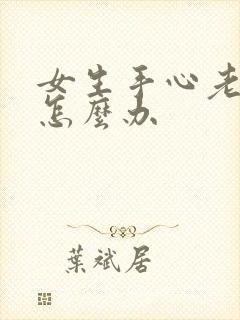 女生手心老
怎麼办
葉斌居